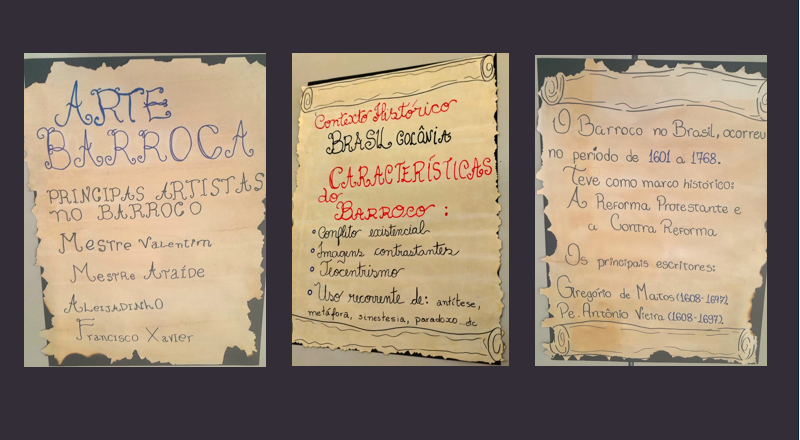 ARTE
BARROCA
PRINCIPAS ARTISTAS
NO BARROCO
Mestre Valentim
Mestre Ataíde
ALEIJADINHO
Francisco Xavier
Contexto Histórico
BRASIL COLÔVIA
CARACTERÍSTICAS
do
BARROCO:
• Conflito existencial
• Imagens contrastantes
• Teocentrismo
• Uso recorrente de: antítese,
metáfora, sinestesia, paradoxo
O Barroco no Brasil, ocorreu
no período de 1601 a 1768.
Teve como marco histórico:
A Reforma Protestante e
a Contra Reforma
Os principais escritores:
Gregório de Matos (1608-1697).
Pe. Antônio Vieira (1608-1697).